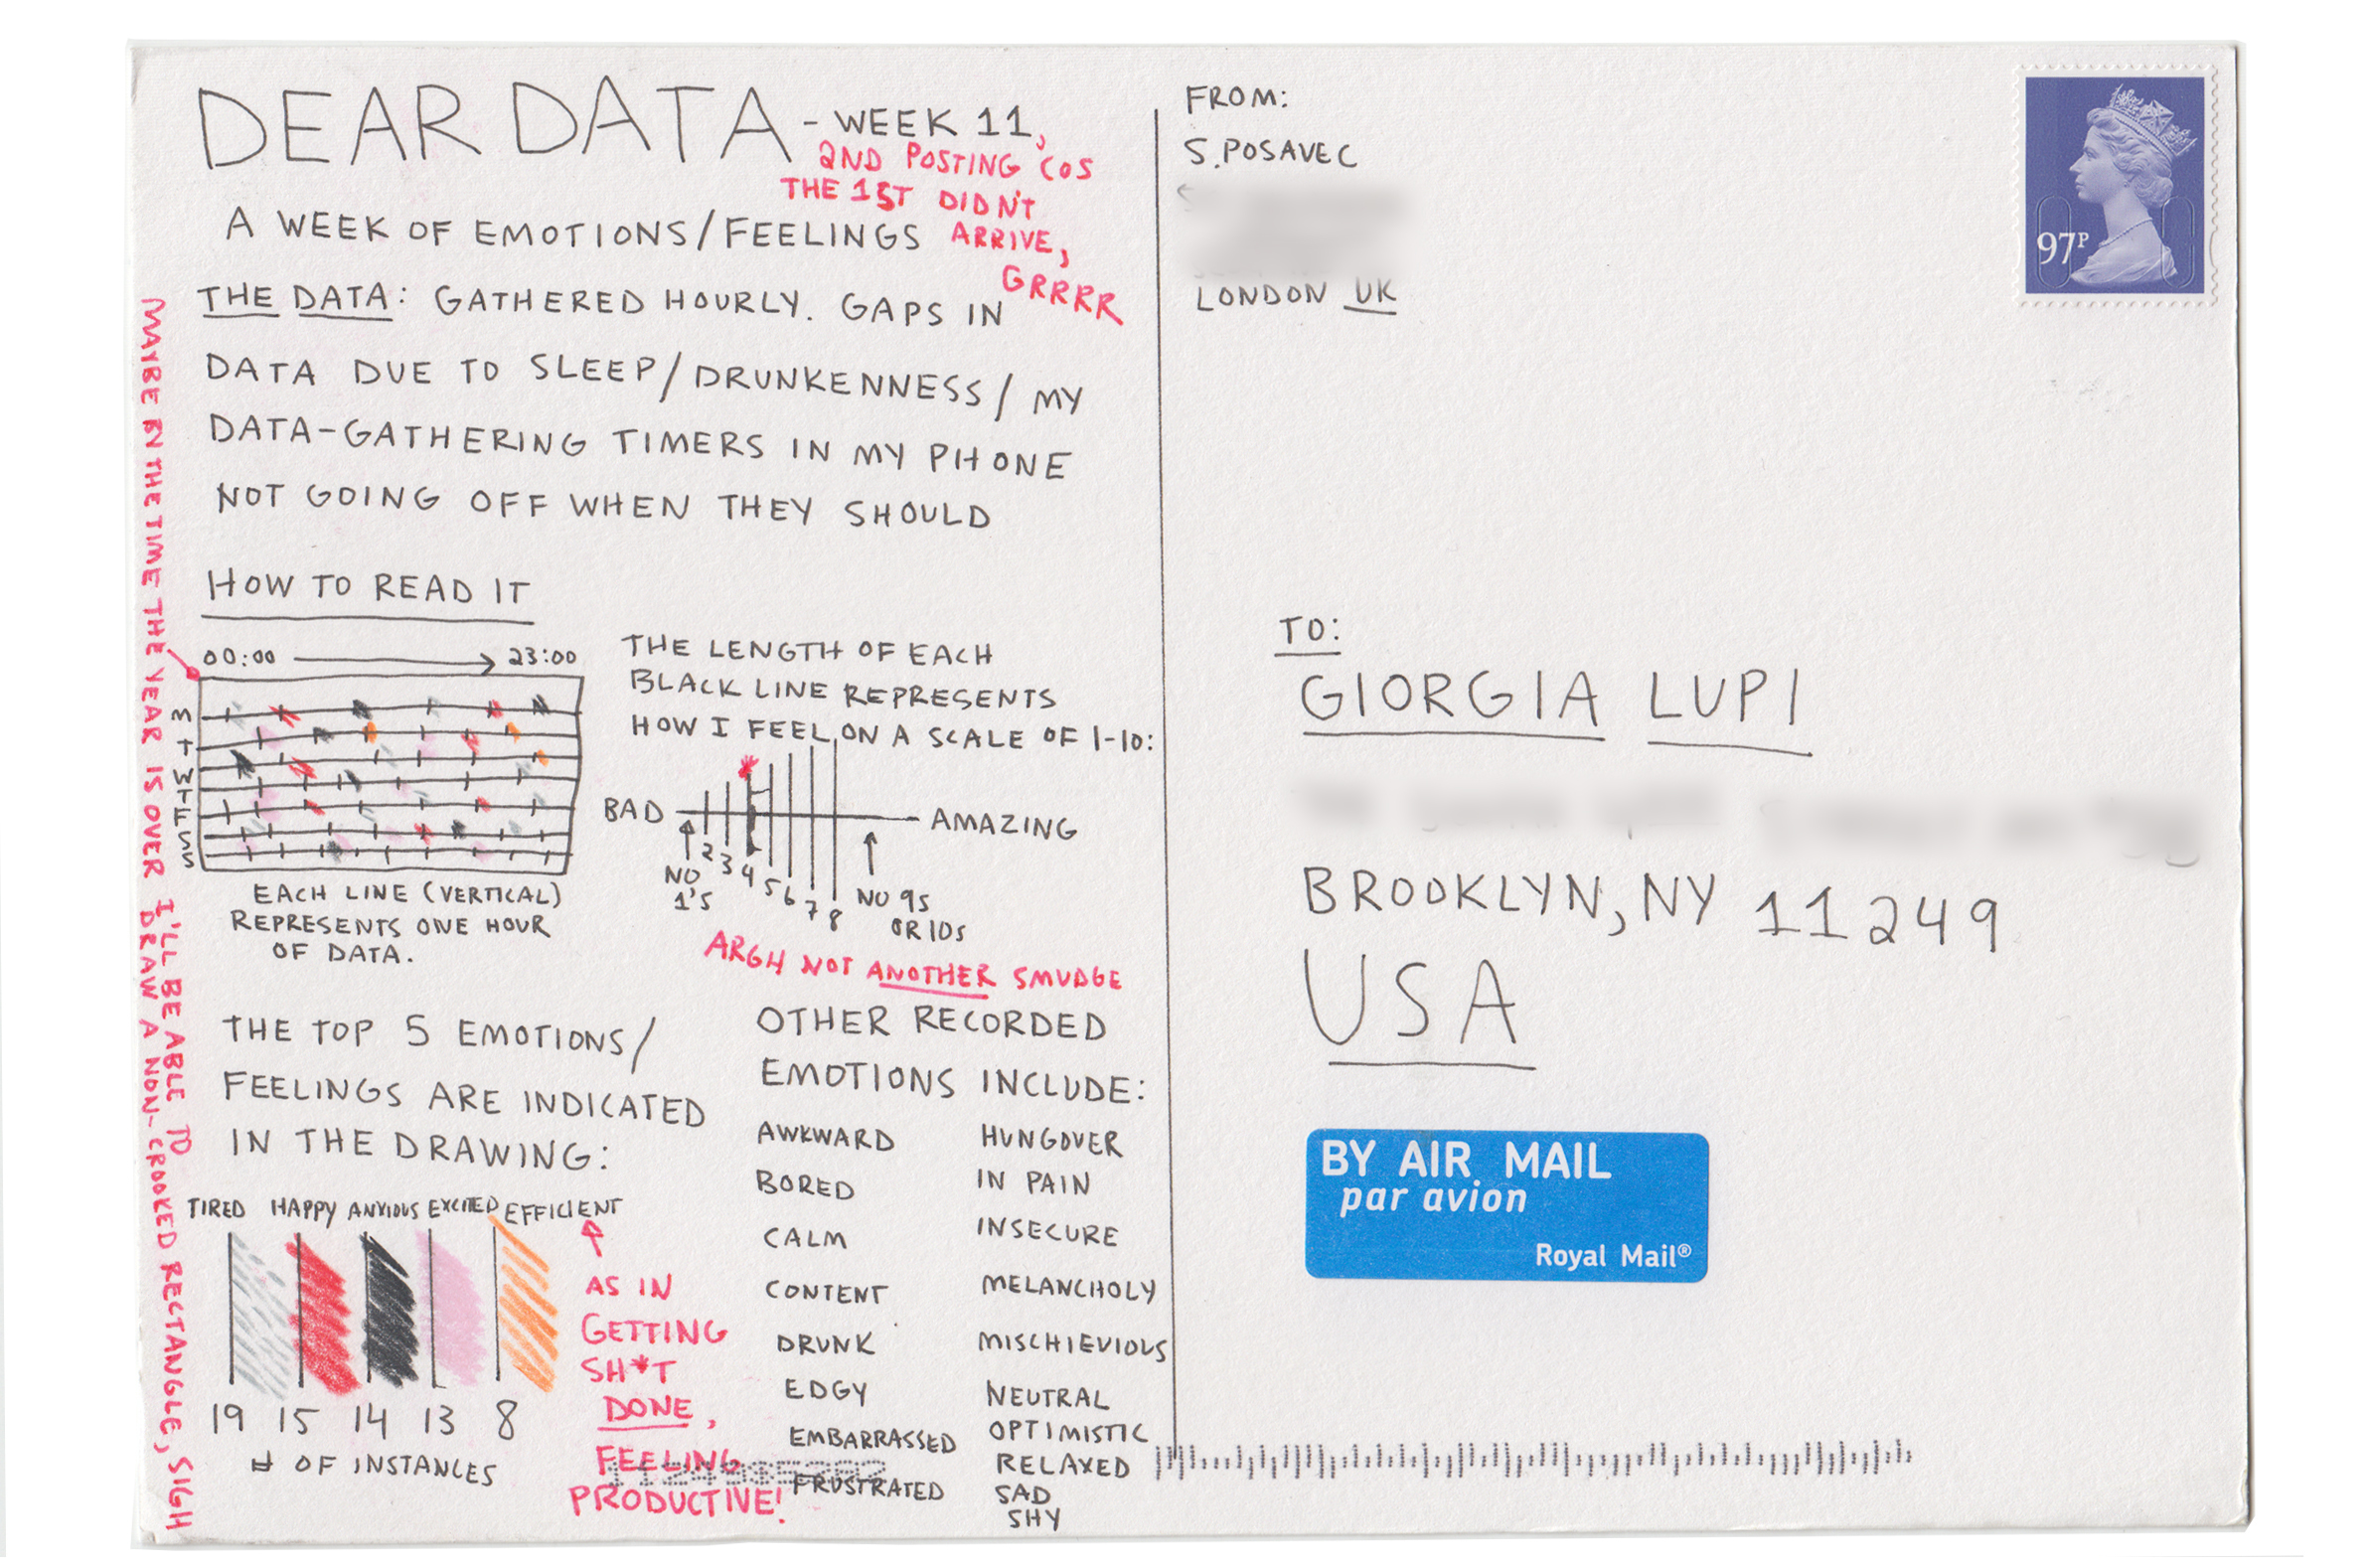 DEAR DATA - WEEK 11,
2ND POSTING COS
THE 1ST DIDN'T
ARRIVE,
GRRRR
A WEEK OF EMOTIONS/FEELINGS
THE DATA: GATHERED HOURLY. GAPS IN
DATA DUE TO SLEEP/DRUNKENNESS/MY
DATA-GATHERING TIMERS IN MY PHONE
NOT GOING OFF WHEN THEY SHOULD
HOW TO READ IT
00:00 23:00
M
T
W
T
F
S
S
EACH LINE (VERTICAL)
REPRESENTS ONE HOUR
OF DATA.
THE LENGTH OF EACH
BLACK LINE REPRESENTS
HOW I FEEL ON A SCALE OF 1-10:
BAD AMAZING
NO 1'S
2 3 4 5 6 7 8
NO 9S
OR 10S
ARGH NOT ANOTHER SMUDGE
MAYBE BY THE TIME THE YEAR IS OVER I'LL BE ABLE TO
DRAW A NON-CROOKED RECTANGLE, SIGH
THE TOP 5 EMOTIONS/
FEELINGS ARE INDICATED
IN THE DRAWING:
TIRED HAPPY ANXIOUS EXCITED EFFICIENT
19 15 14 13 8
# OF INSTANCES
AS IN
GETTING
SH*T
DONE,
FEELING
PRODUCTIVE!
OTHER RECORDED
EMOTIONS INCLUDE:
AWKWARD
BORED
CALM
CONTENT
DRUNK
EDGY
EMBARRASSED
FRUSTRATED
HUNGOVER
IN PAIN
INSECURE
MELANCHOLY
MISCHIEVIOUS
NEUTRAL
OPTIMISTIC
RELAXED
SAD
SHY
FROM:
S.POSAVEC
LONDON UK
97P
TO:
GIORGIA LUPI
BROOKLYN, NY 11249
USA
BY AIR MAIL
par avion
Royal Mail®